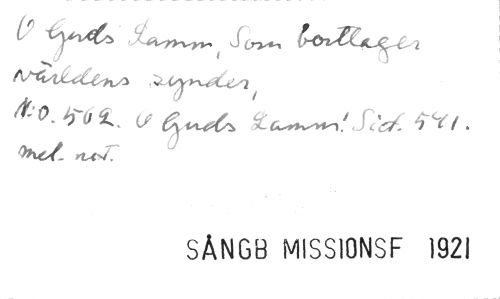 O Guds Lamm, Som borttager
världens synder,
N:o. 562. O Guds Lamm! Sid. 541.
mel. not.
SÅNGB MISSIONSF 1921